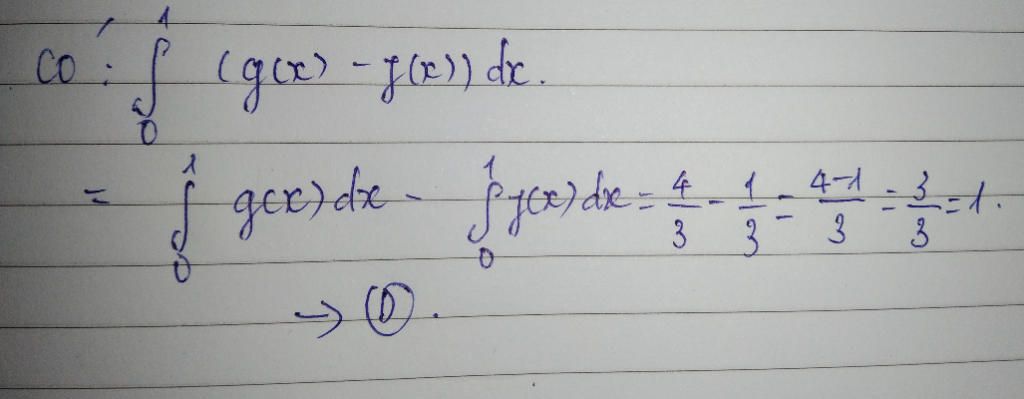 Có: ∫₀¹ (g(x) - f(x)) dx.
= ∫₀¹ g(x) dx - ∫₀¹ f(x) dx = 4/3 - 1/3 = (4-1)/3 = 3/3 = 1.
→ Ⓓ.